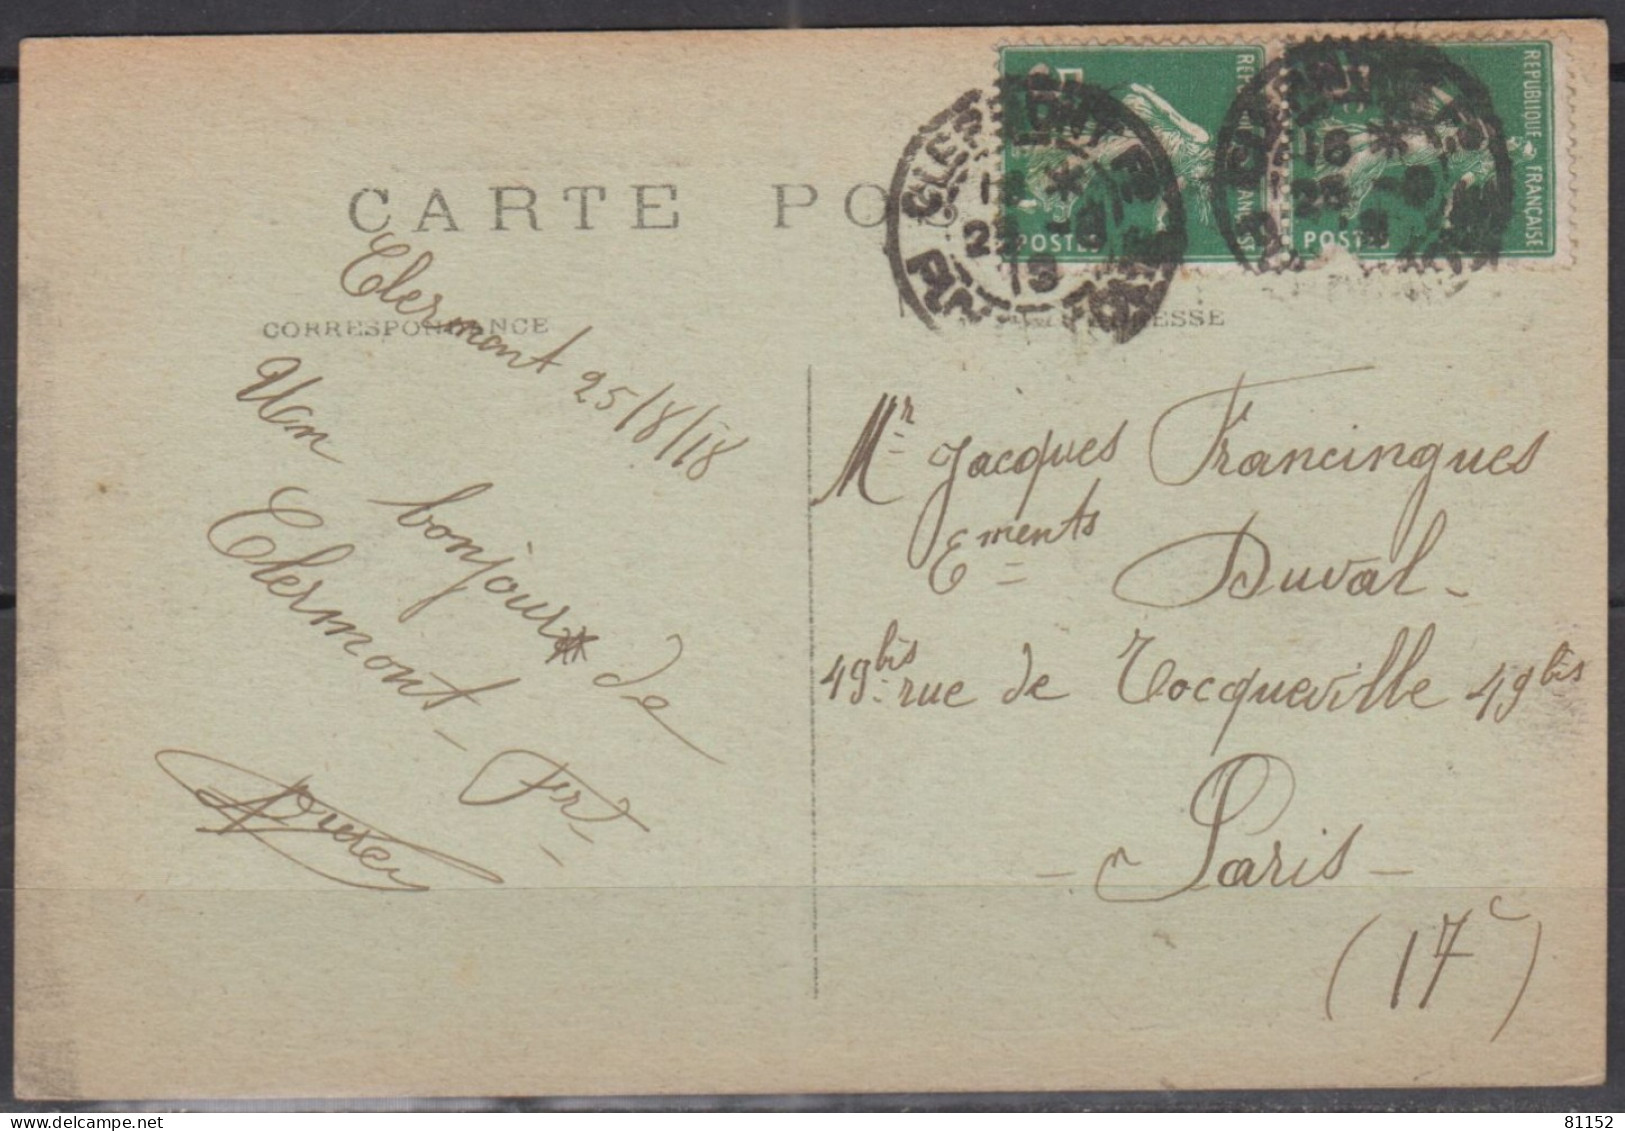 CARTE PO
CORRESPONDANCE
ESSE
REPUBLIQUE FRANÇAISE
POSTES
POSTES
CLERMONT FD
16 *
25 -8
19
Clermont 25/8/18
Un bonjour de
Clermont - Fd -
Mr Jacques Francingues
Ements Duval -
49bis rue de Tocqueville 49bis
- Paris -
(17e)
81152